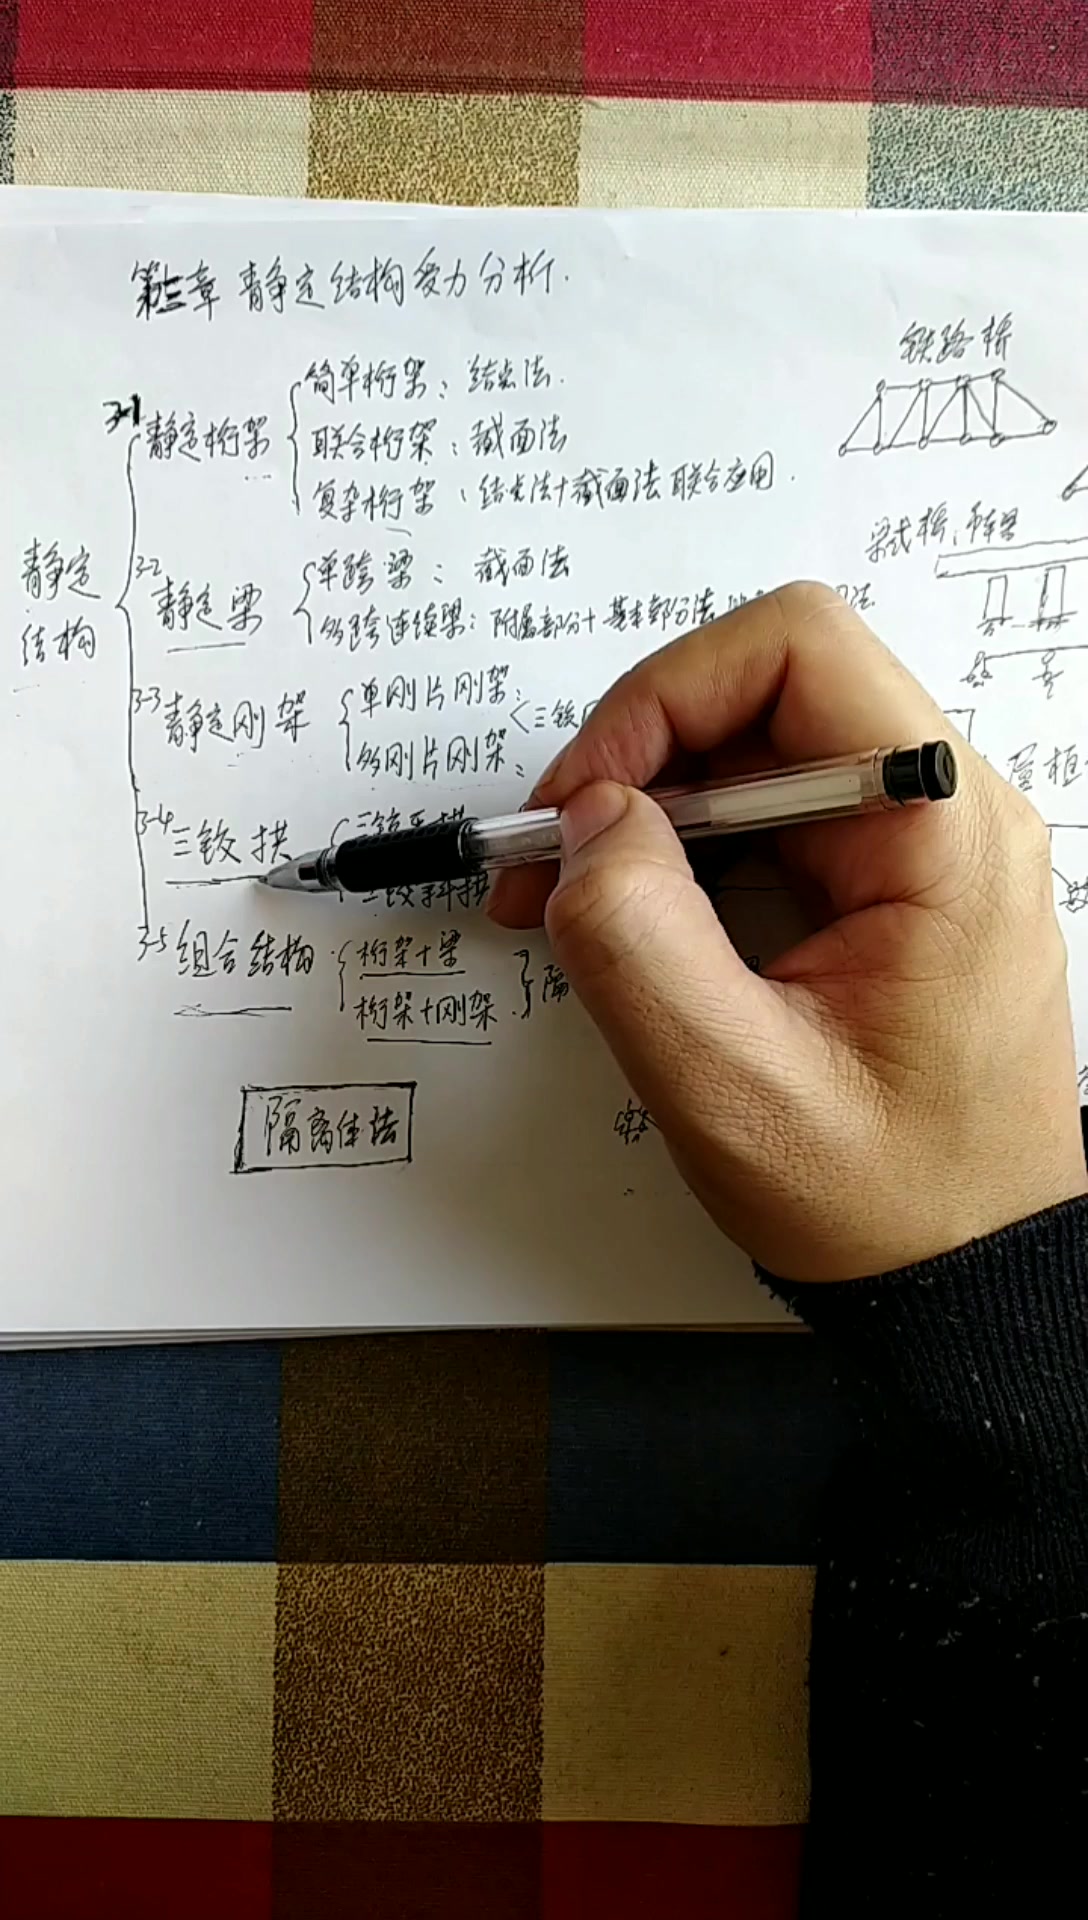 第三章 静定结构受力分析.
铁路桥
3-1 静定桁架
简单桁架: 结点法.
联合桁架: 截面法
复杂桁架: 结点法+截面法 联合应用.
静定结构
梁式桥,
3-2 静定梁
单跨梁: 截面法
多跨连续梁: 附属部分+基本部分法
3-3 静定刚架
单刚片刚架: 三铰
多刚片刚架:
3-4 三铰拱
三铰平拱
三铰斜拱
3-5 组合结构
桁架+梁
桁架+刚架
隔
隔离体法